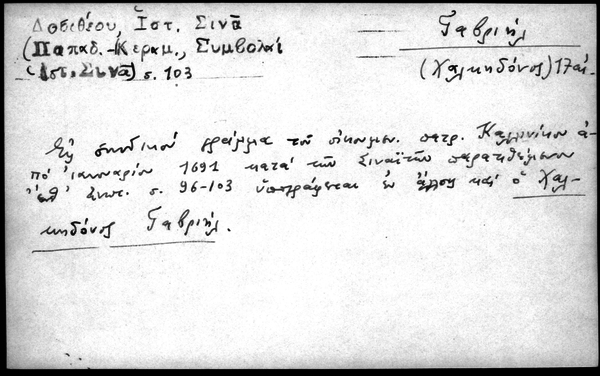 Δοσιθέου, Ἱστ. Σινᾶ
(Παπαδ.-Κεραμ., Συμβολαί
(Ἱστ. Σινᾶ) σ. 103
Γαβριήλ
(Χαλκηδόνος) 17 αἰ.
Εἰς συνοδικόν γράμμα τοῦ οἰκουμεν. πατρ. Καλλινίκου ἀ-
πό ἰανουαρίου 1691 κατά τῶν Σιναϊτῶν παρατιθέμενον
ἔνθ' ἀνωτ. σ. 96-103 ὑπογράφεται ἐν ἄλλοις καί ὁ Χαλ-
κηδόνος Γαβριήλ.